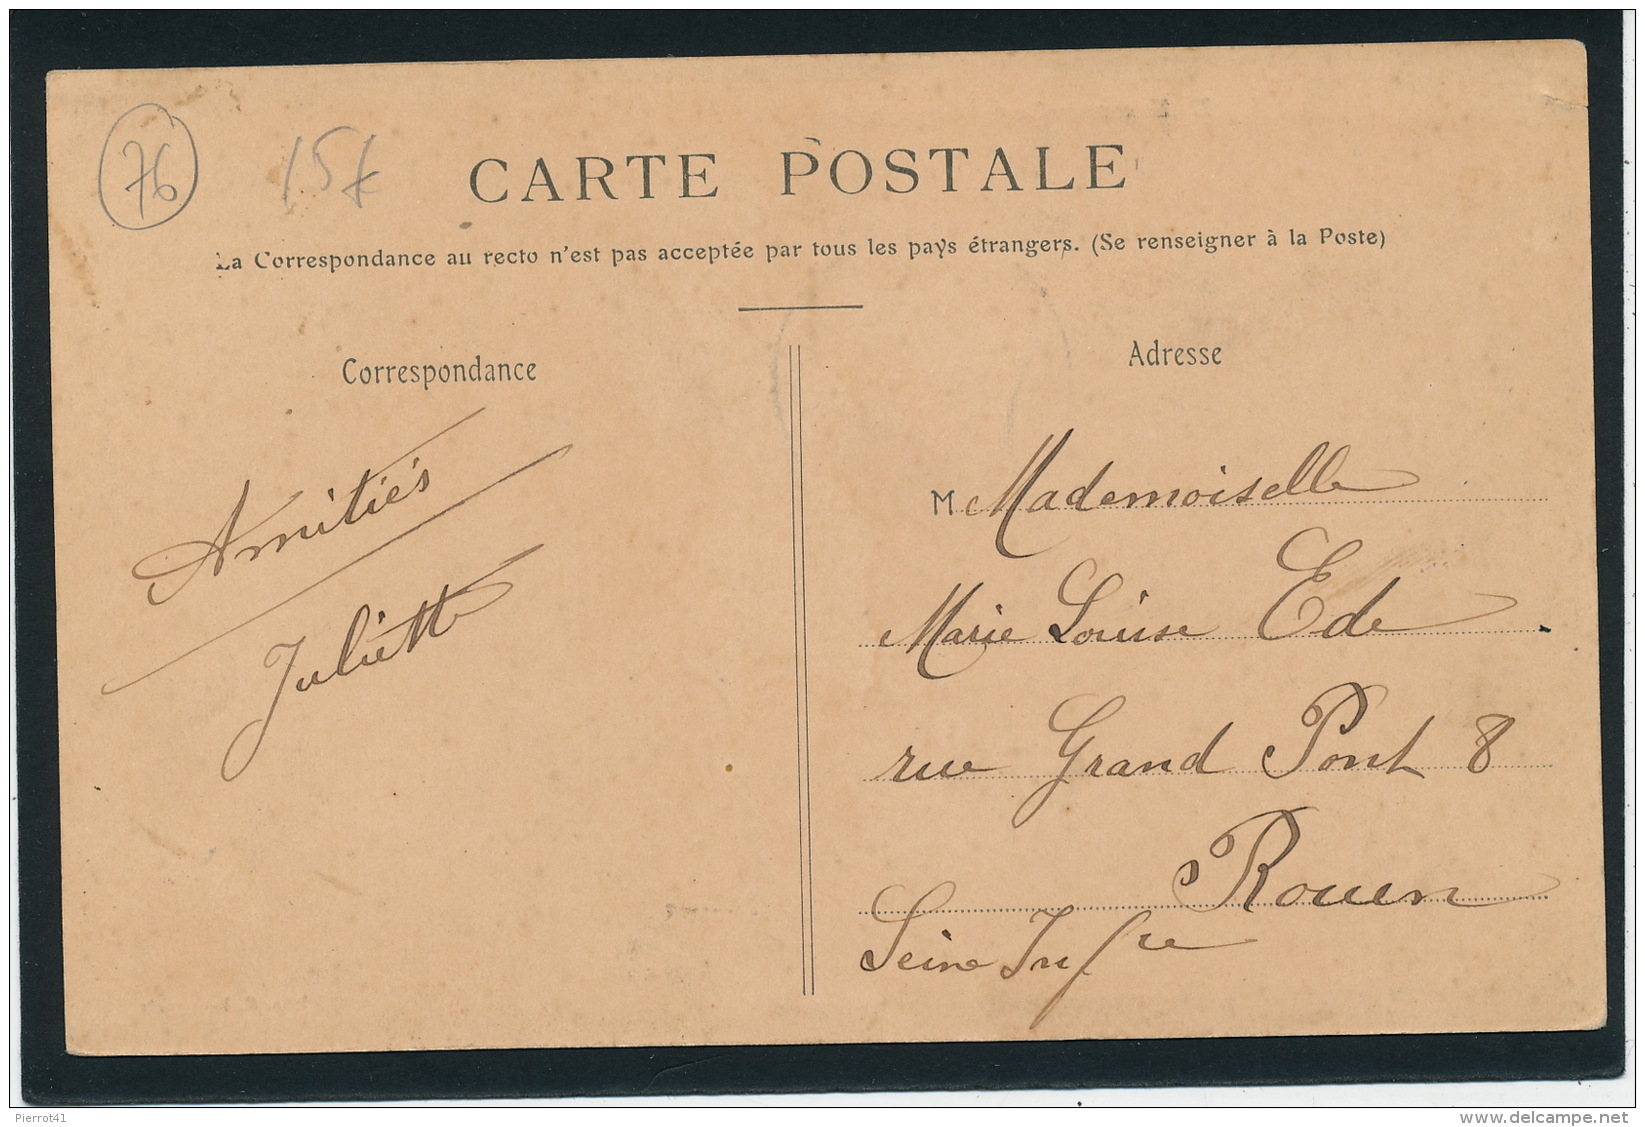 76
15€
CARTE POSTALE
La Correspondance au recto n'est pas acceptée par tous les pays étrangers. (Se renseigner à la Poste)
Correspondance
Adresse
Amitiés
Juliette
M Mademoiselle
Marie Louise Ede
rue Grand Pont 8
Rouen
Seine Infre
Pierrot41
www.delcampe.net